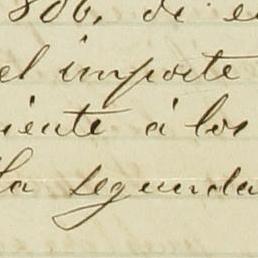 806, de e
el importe
iente á los
la segunda